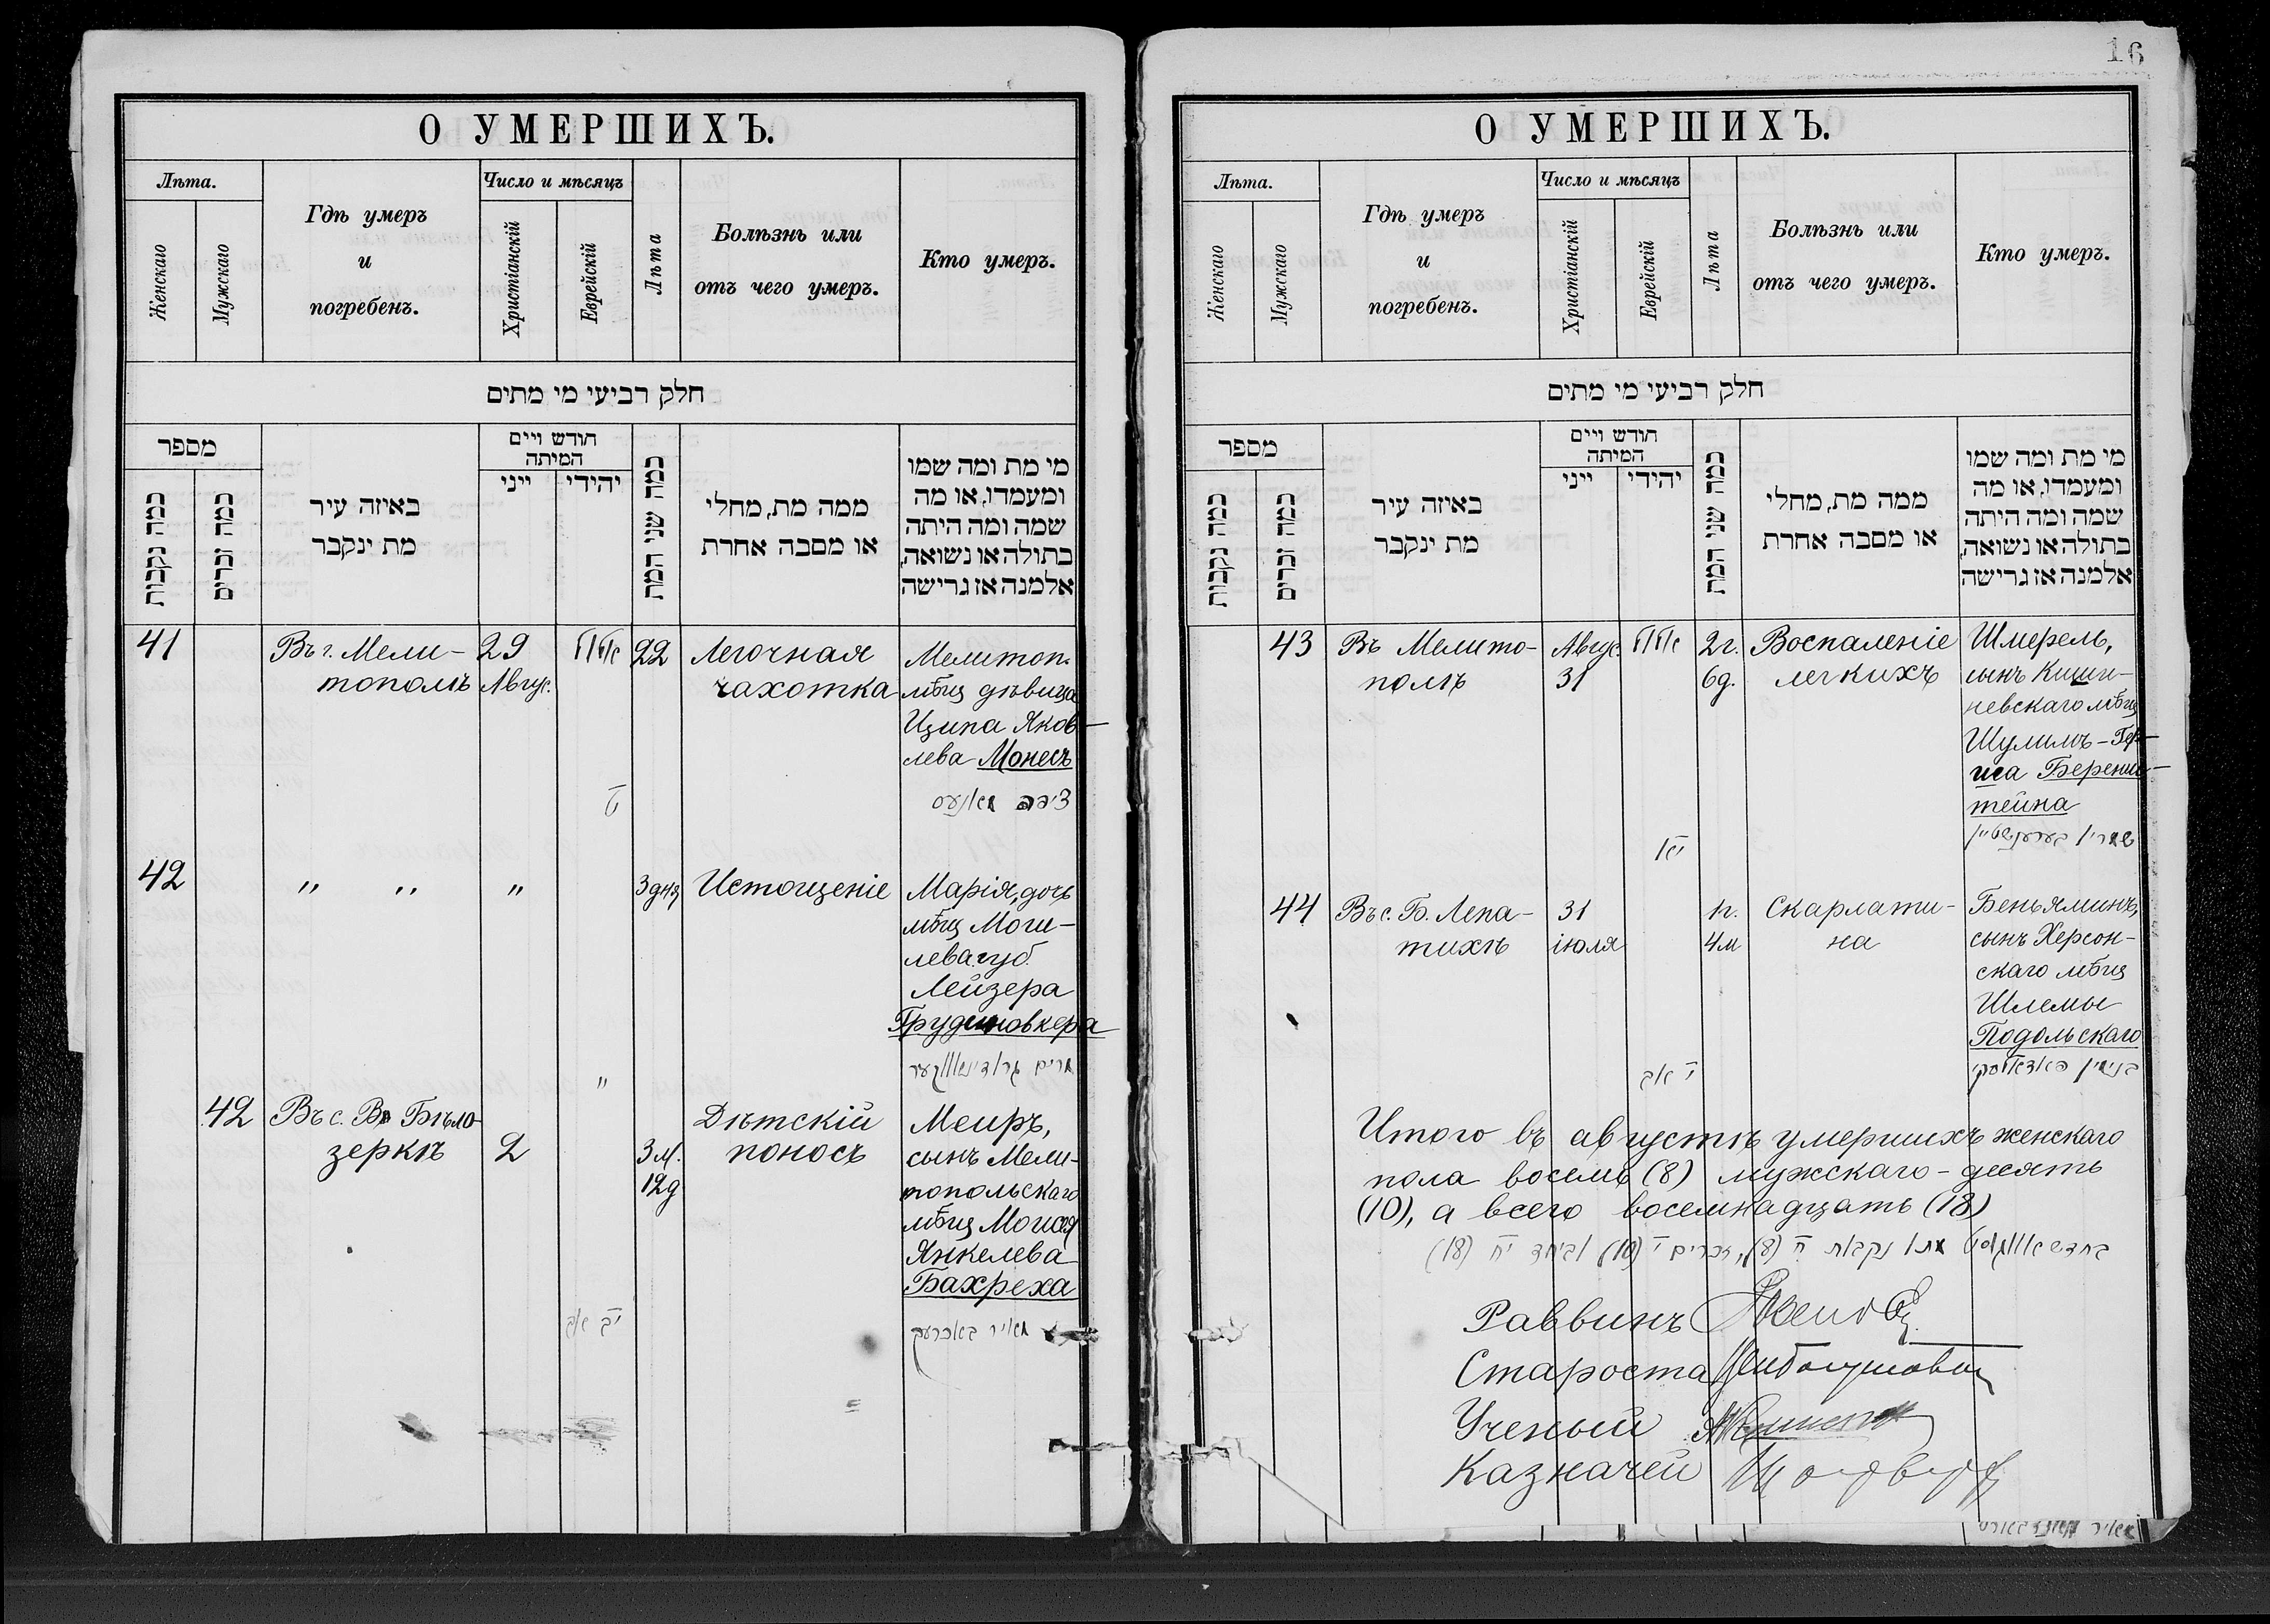 О УМЕРШИХЪ.
Лѣта.
Женскаго
Мужскаго
Гдѣ умеръ
и
погребенъ.
Число и мѣсяцъ
Христіанскій
Еврейскій
Лѣта
Болѣзнь или
отъ чего умеръ.
Кто умеръ.
חלק רביעי מי מתים
מספר
כמה נקבות
כמה זכרים
באיזה עיר
מת ינקבר
חודש ויים
המיתה
ייני
יהידי
כמה שני המת
ממה מת, מחלי
או מסבה אחרת
מי מת ומה שמו
ומעמדו, או מה
שמה ומה היתה
בתולה או נשואה,
אלמנה אז גרישה
41
Въ г. Мели-
тополѣ
29
Авгус.
22
Легочная
чахотка
Мелитоп.
мѣщ дѣвица
Ципа Яков-
лева Монесъ
ציפה מאנעס
42
" "
"
3 дня
Истощеніе
Марія, дочь
мѣщ Моги-
лева. губ.
Лейзера
Грудиновкера
"
42
Въ с. Бѣло
зеркѣ
2
יב אב
3 м.
12 д
Дѣтскій
поносъ
Меиръ,
сынъ Мели-
топольскаго
мѣщ Моисея
Янкелева
Бахреха
מאיר באכרעך
16
О УМЕРШИХЪ.
Лѣта.
Женскаго
Мужскаго
Гдѣ умеръ
и
погребенъ.
Число и мѣсяцъ
Христіанскій
Еврейскій
Лѣта
Болѣзнь или
отъ чего умеръ.
Кто умеръ.
חלק רביעי מי מתים
מספר
כמה נקבות
כמה זכרים
באיזה עיר
מת ינקבר
חודש ויים
המיתה
ייני
יהידי
כמה שני המת
ממה מת, מחלי
או מסבה אחרת
מי מת ומה שמו
ומעמדו, או מה
שמה ומה היתה
בתולה או נשואה,
אלמנה אז גרישה
43
Въ Мелито-
полѣ
Авгус.
31
2 г.
6 д.
Воспаленіе
легкихъ
Шмерель,
сынъ Кишин-
невскаго мѣщ
Шулимъ-Гер-
иса Беренш-
тейна
44
Въ с. Б. Лепа-
тихѣ
31
іюля
י אב
4 м
Скарлати-
на
Беньяминъ,
сынъ Херсон-
скаго мѣщ
Шлемы
Подольскаго
Итого въ августѣ умершихъ женскаго
пола восемь (8) мужскаго - десять
(10), а всего восемнадцать (18)
בחדש אווגוסט מתו נקבות ח (8), זכרים י (10) וביחד יח (18)
Раввинъ
Староста
Ученый
Казначей